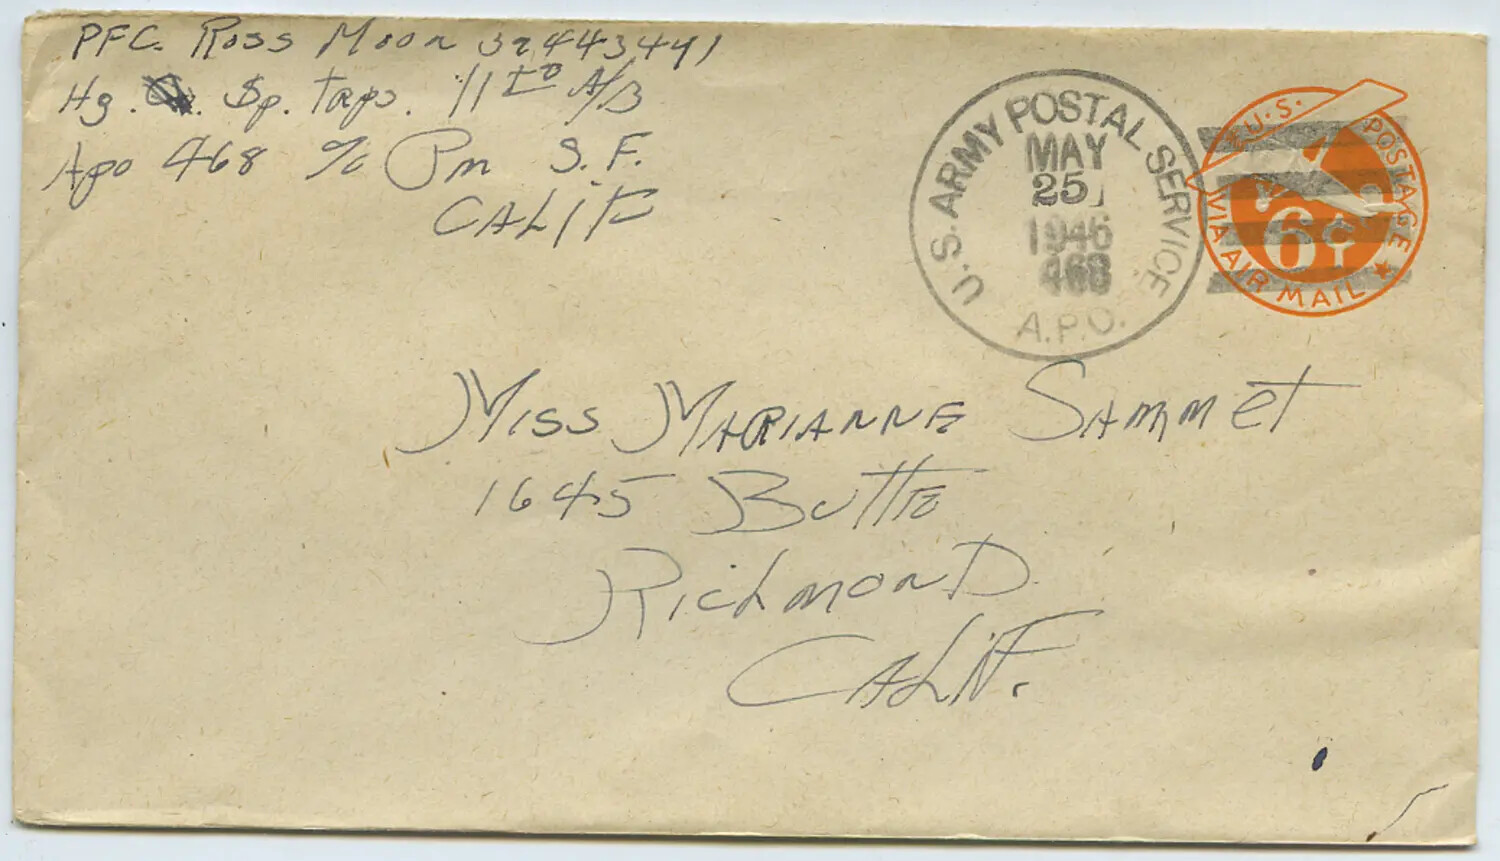 PFC. Ross Moon 39443441
Hq. Sp. Trps. 11th A/B
Apo 468 % Pm S.F.
CALIF
U.S. ARMY POSTAL SERVICE
MAY
25
1946
468
A.P.O.
U.S. POSTAGE
6¢
VIA AIR MAIL
Miss MARIANNE SAmmet
1645 Butte
RichmonD
CALIF.